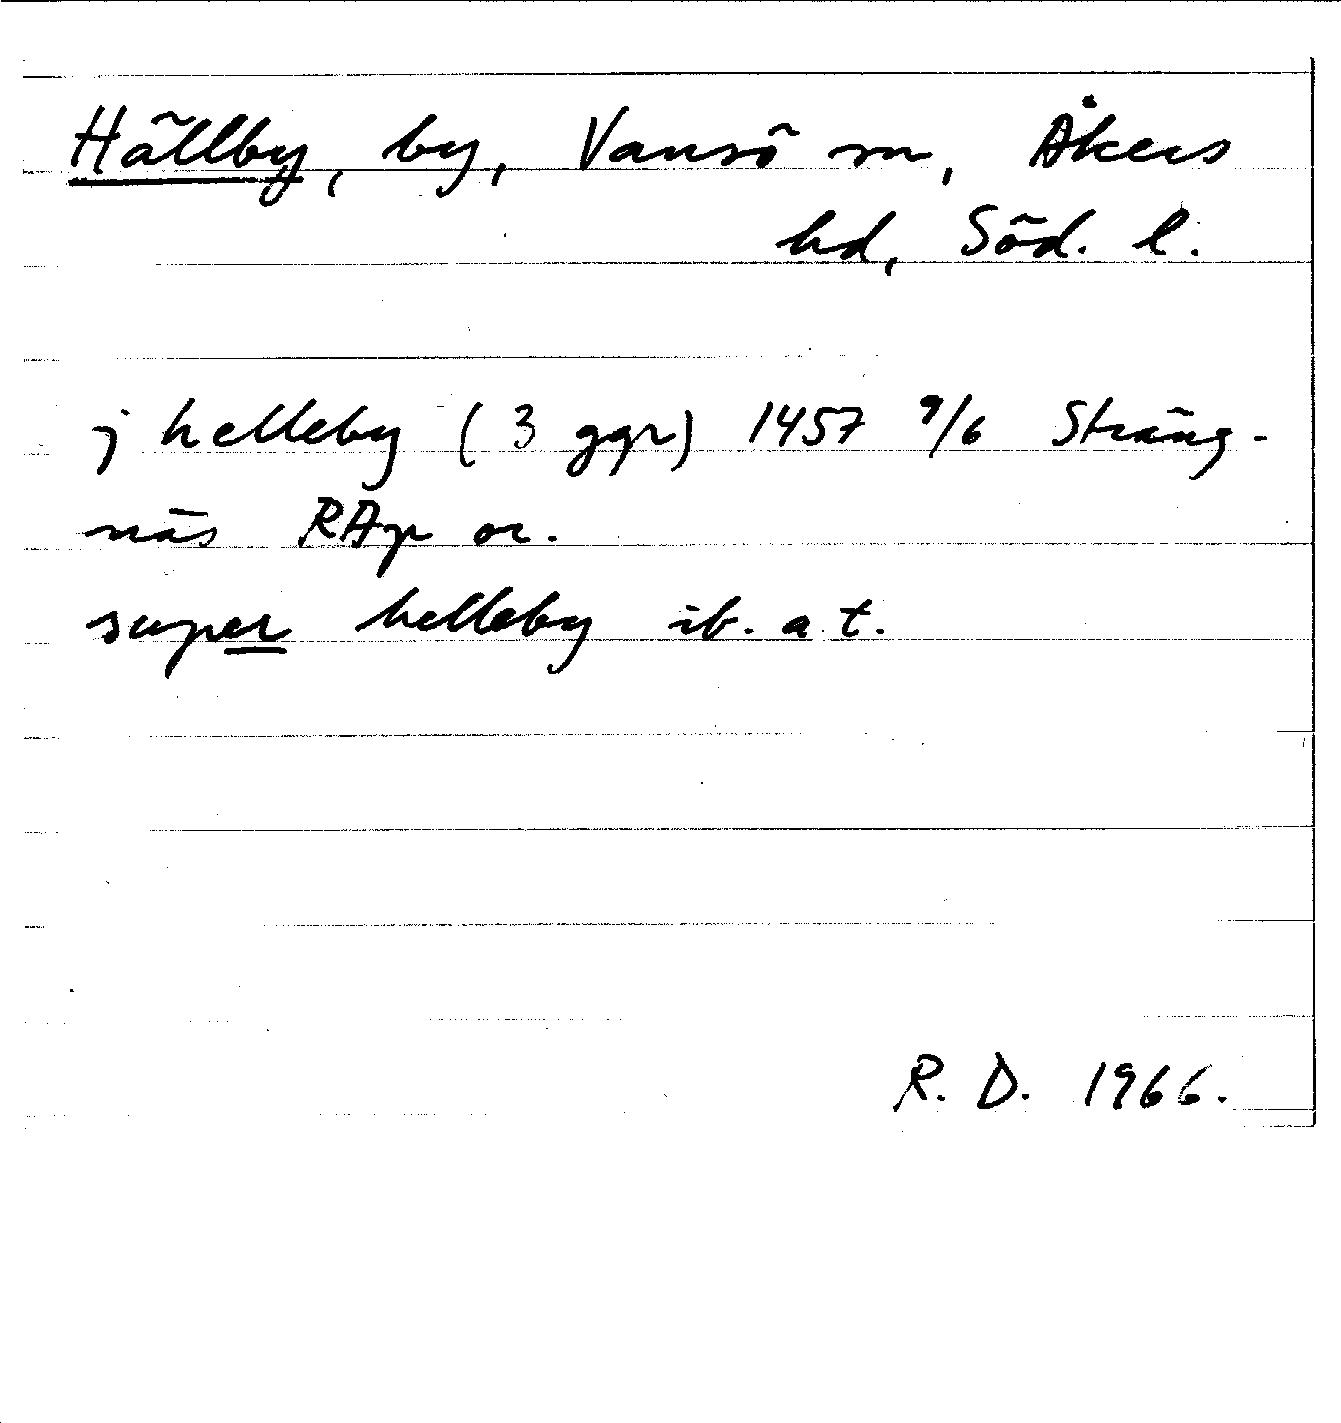 Hällby, by, Vansö sn, Åkers
hd, Söd. l.
j helleby (3 ggr) 1457 9/6 Sträng-
näs RAp or.
super helleby ib. a t.
R. D. 1966.